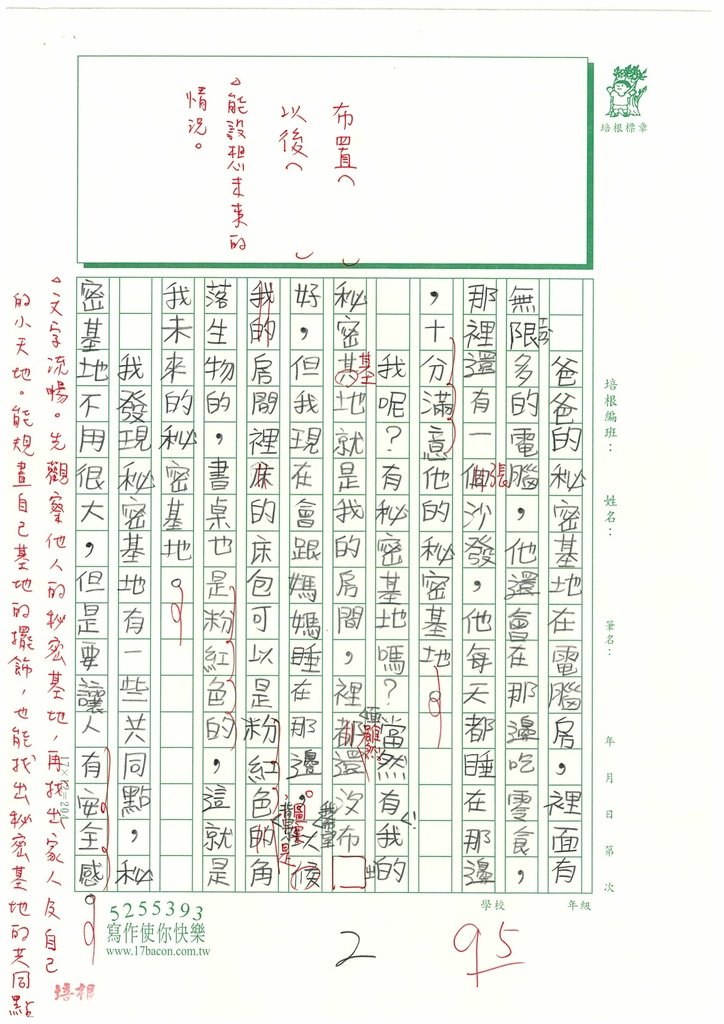 布置(　)
以後(　)
△能設想未來的
情況。
培根標章
培根編班：　姓名：　筆名：　年　月　日　第　次
學校　年級
爸爸的秘密基地在電腦房，裡面有
無限多的電腦，他還會在那邊吃零食，
那裡還有一個沙發，他每天都睡在那邊
張
，十分滿意他的秘密基地。
我呢？有秘密基地嗎？當然有！我的
秘密基地就是我的房間，裡都還沒布出
基
雖然
我希望
好，但我現在會跟媽媽睡在那邊。以後
我的房間裡床的床包可以是粉紅色的角
落生物的，書桌也是粉紅色的，這就是
我未來的秘密基地。
我發現秘密基地有一些共同點，秘
密基地不用很大，但是要讓人有安全感
。
17×12=204
△文字流暢。先觀察他人的秘密基地，再找出家人及自己
的小天地。能規畫自己基地的擺飾，也能找出秘密基地的共同點
培根
5255393
寫作使你快樂
www.17bacon.com.tw
2
95